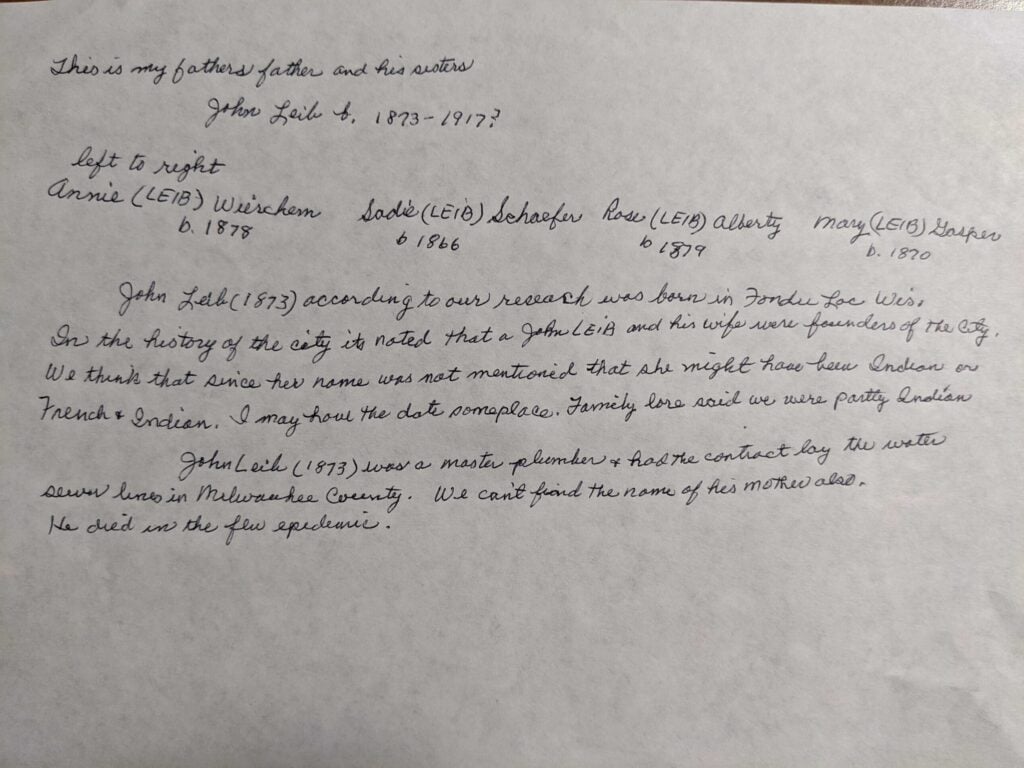 This is my fathers father and his sisters
John Leib b. 1873-1917?
left to right
Annie (LEIB) Wierschem Sadie (LEIB) Schaefer Rose (LEIB) Alberty Mary (LEIB) Gasper
b. 1878 b 1866 b 1879 b. 1870
John Leib (1873) according to our reseach was born in Fondu Lac Wis.
In the history of the city its noted that a John LEIB and his wife were founders of the City.
We think that since her name was not mentioned that she might have been Indian or
French & Indian. I may have the date someplace. Family lore said we were partly Indian
John Leib (1873) was a master plumber & had the contract lay the water
sewer lines in Milwaukee County. We can't find the name of his mother also.
He died in the flu epidemic.